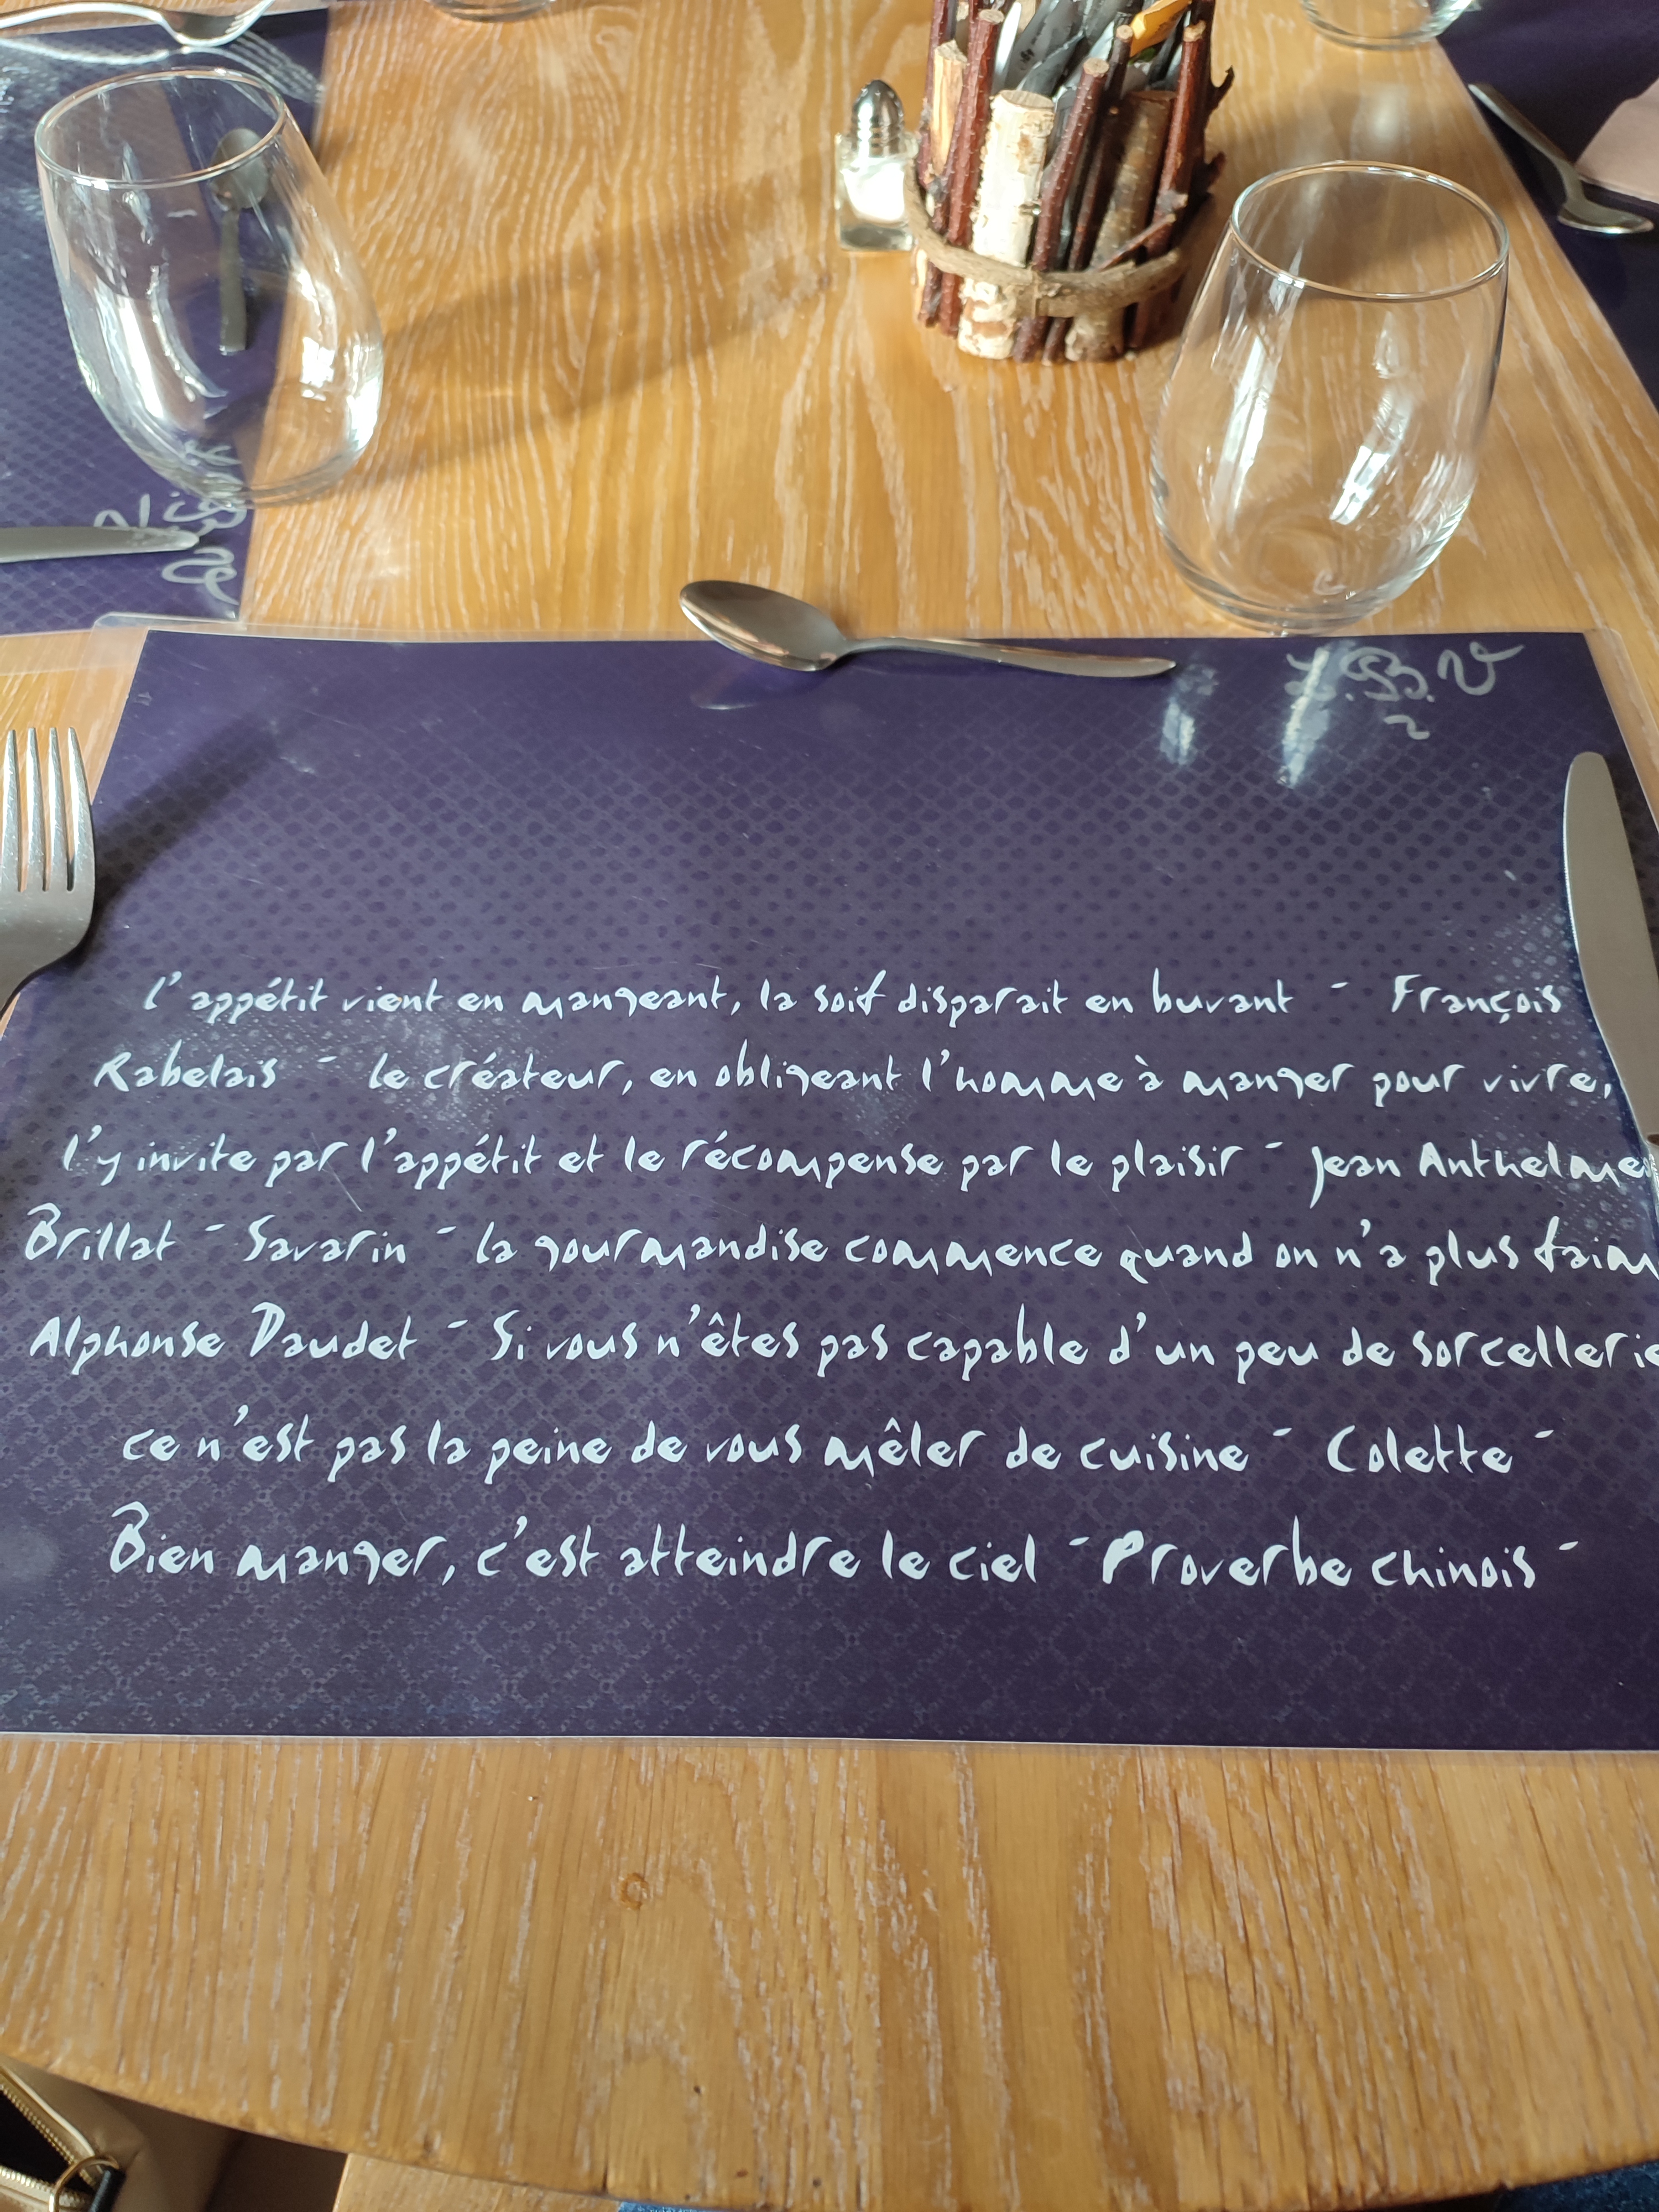 L.B.V
2
l'appétit vient en mangeant, la soif disparait en buvant - François
Rabelais - le créateur, en obligeant l'homme à manger pour vivre,
l'y invite par l'appétit et le récompense par le plaisir - Jean Anthelme
Brillat - Savarin - la gourmandise commence quand on n'a plus faim
Alphonse Daudet - Si vous n'êtes pas capable d'un peu de sorcellerie
ce n'est pas la peine de vous mêler de cuisine - Colette -
Bien manger, c'est atteindre le ciel - Proverbe chinois -